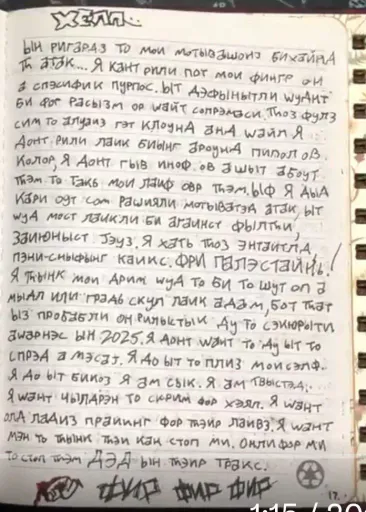 ХЕЛЛО
ЫН РИГАРДЗ ТО МОИ МОТЫВАШОНЗ БИХАЙНД
ТН АТАК... Я КАНТ РИЛИ ПОТ МОИ ФИНГР ОН
А СПЭСИФИК ПУРПОС. ЫТ ДЭФЫНЫТЛИ WУДНТ
БИ ФОР РАСЫЗМ ОР WАЙТ СОПРЭМАСИ.
СИМ ТО АЛWАИЗ ГЭТ КЛОУНД АНД WАЙЛ Я
ДОНТ РИЛИ ЛАИК БИЫНГ АРОУНД ПИПОЛ ОВ
КОЛОР, Я ДОНТ ГЫВ ИНОФ ОВ А ШЫТ АБОУТ
ТНЭМ ТО ТАКЬ МОИ ЛАИФ ОВР ТНЭМ. ЫФ Я ДЫД
КАРИ ОУТ СОМ РАШИЯЛИ МОТЫВАТЭД АТАК, ЫТ
WУД МОСТ ЛАИКЛИ БИ АГАИНСТ ФЫЛТНИ,
ЗАИЮНЫСТ ДЗУЗ. Я ХАТЬ ТНОЗ ЭНТАИТЛД,
ПЭНИ-СНЫФЫНГ КАИКС. ФРИ ПАЛЭСТАЙНЬ!
Я ТНЫНК МОИ ДРИМ WУД ТО БИ ТО ШУТ ОП А
МЫДЛ ИЛИ ГРАДЬ СКУЛ ЛАИК АДАМ, БОТ ТНАТ
ЫЗ ПРОБАБЛИ ОНРИЛЫСТЫК ДУ ТО СЭКЮРЫТИ
АWАРНЭС ЫН 2025. Я ДОНТ WАНТ ТО ДУ ЫТ ТО
СПРЭД А МЭСАДЖ. Я ДО ЫТ ТО ПЛИЗ МОИСЭЛФ.
Я ДО ЫТ БИКОЗ Я АМ СЫК. Я АМ ТWЫСТЭД.
Я WАНТ ЧЫЛДРЭН ТО СКРИМ ФОР ХЭЛП. Я WАНТ
ОЛД ЛАДИЗ ПРАЙИНГ ФОР ТНЭИР ЛАЙВЗ. Я WАНТ
МЭН ТО ТНЫНК ТНЭИ КАН СТОП МИ. ОНЛИ ФОР МИ
ТО СТОП ТНЭМ ДЭД ЫН ТНЭИР ТРАКС.
ФИР ФИР ФИР